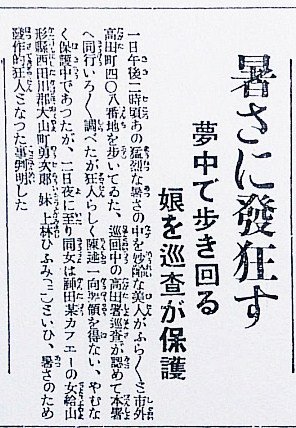 暑さに發狂す
夢中で歩き回る
娘を巡査が保護
一日午後二時頃あの猛烈な暑さの中を妙齢な美人がふら〳〵と市外
高田町四〇八番地を歩いてゐた、巡回中の高田署巡査が認めて本署
へ同行いろ〳〵調べたが狂人らしく陳述一向要領を得ない、やむな
く保護中であつたが、二日夜に至り同女は神田某カフエーの女給山
形縣西田川郡大山町勇次郎妹上林ひふみ(二〇)といひ、暑さのため
發作的狂人となつた事判明した